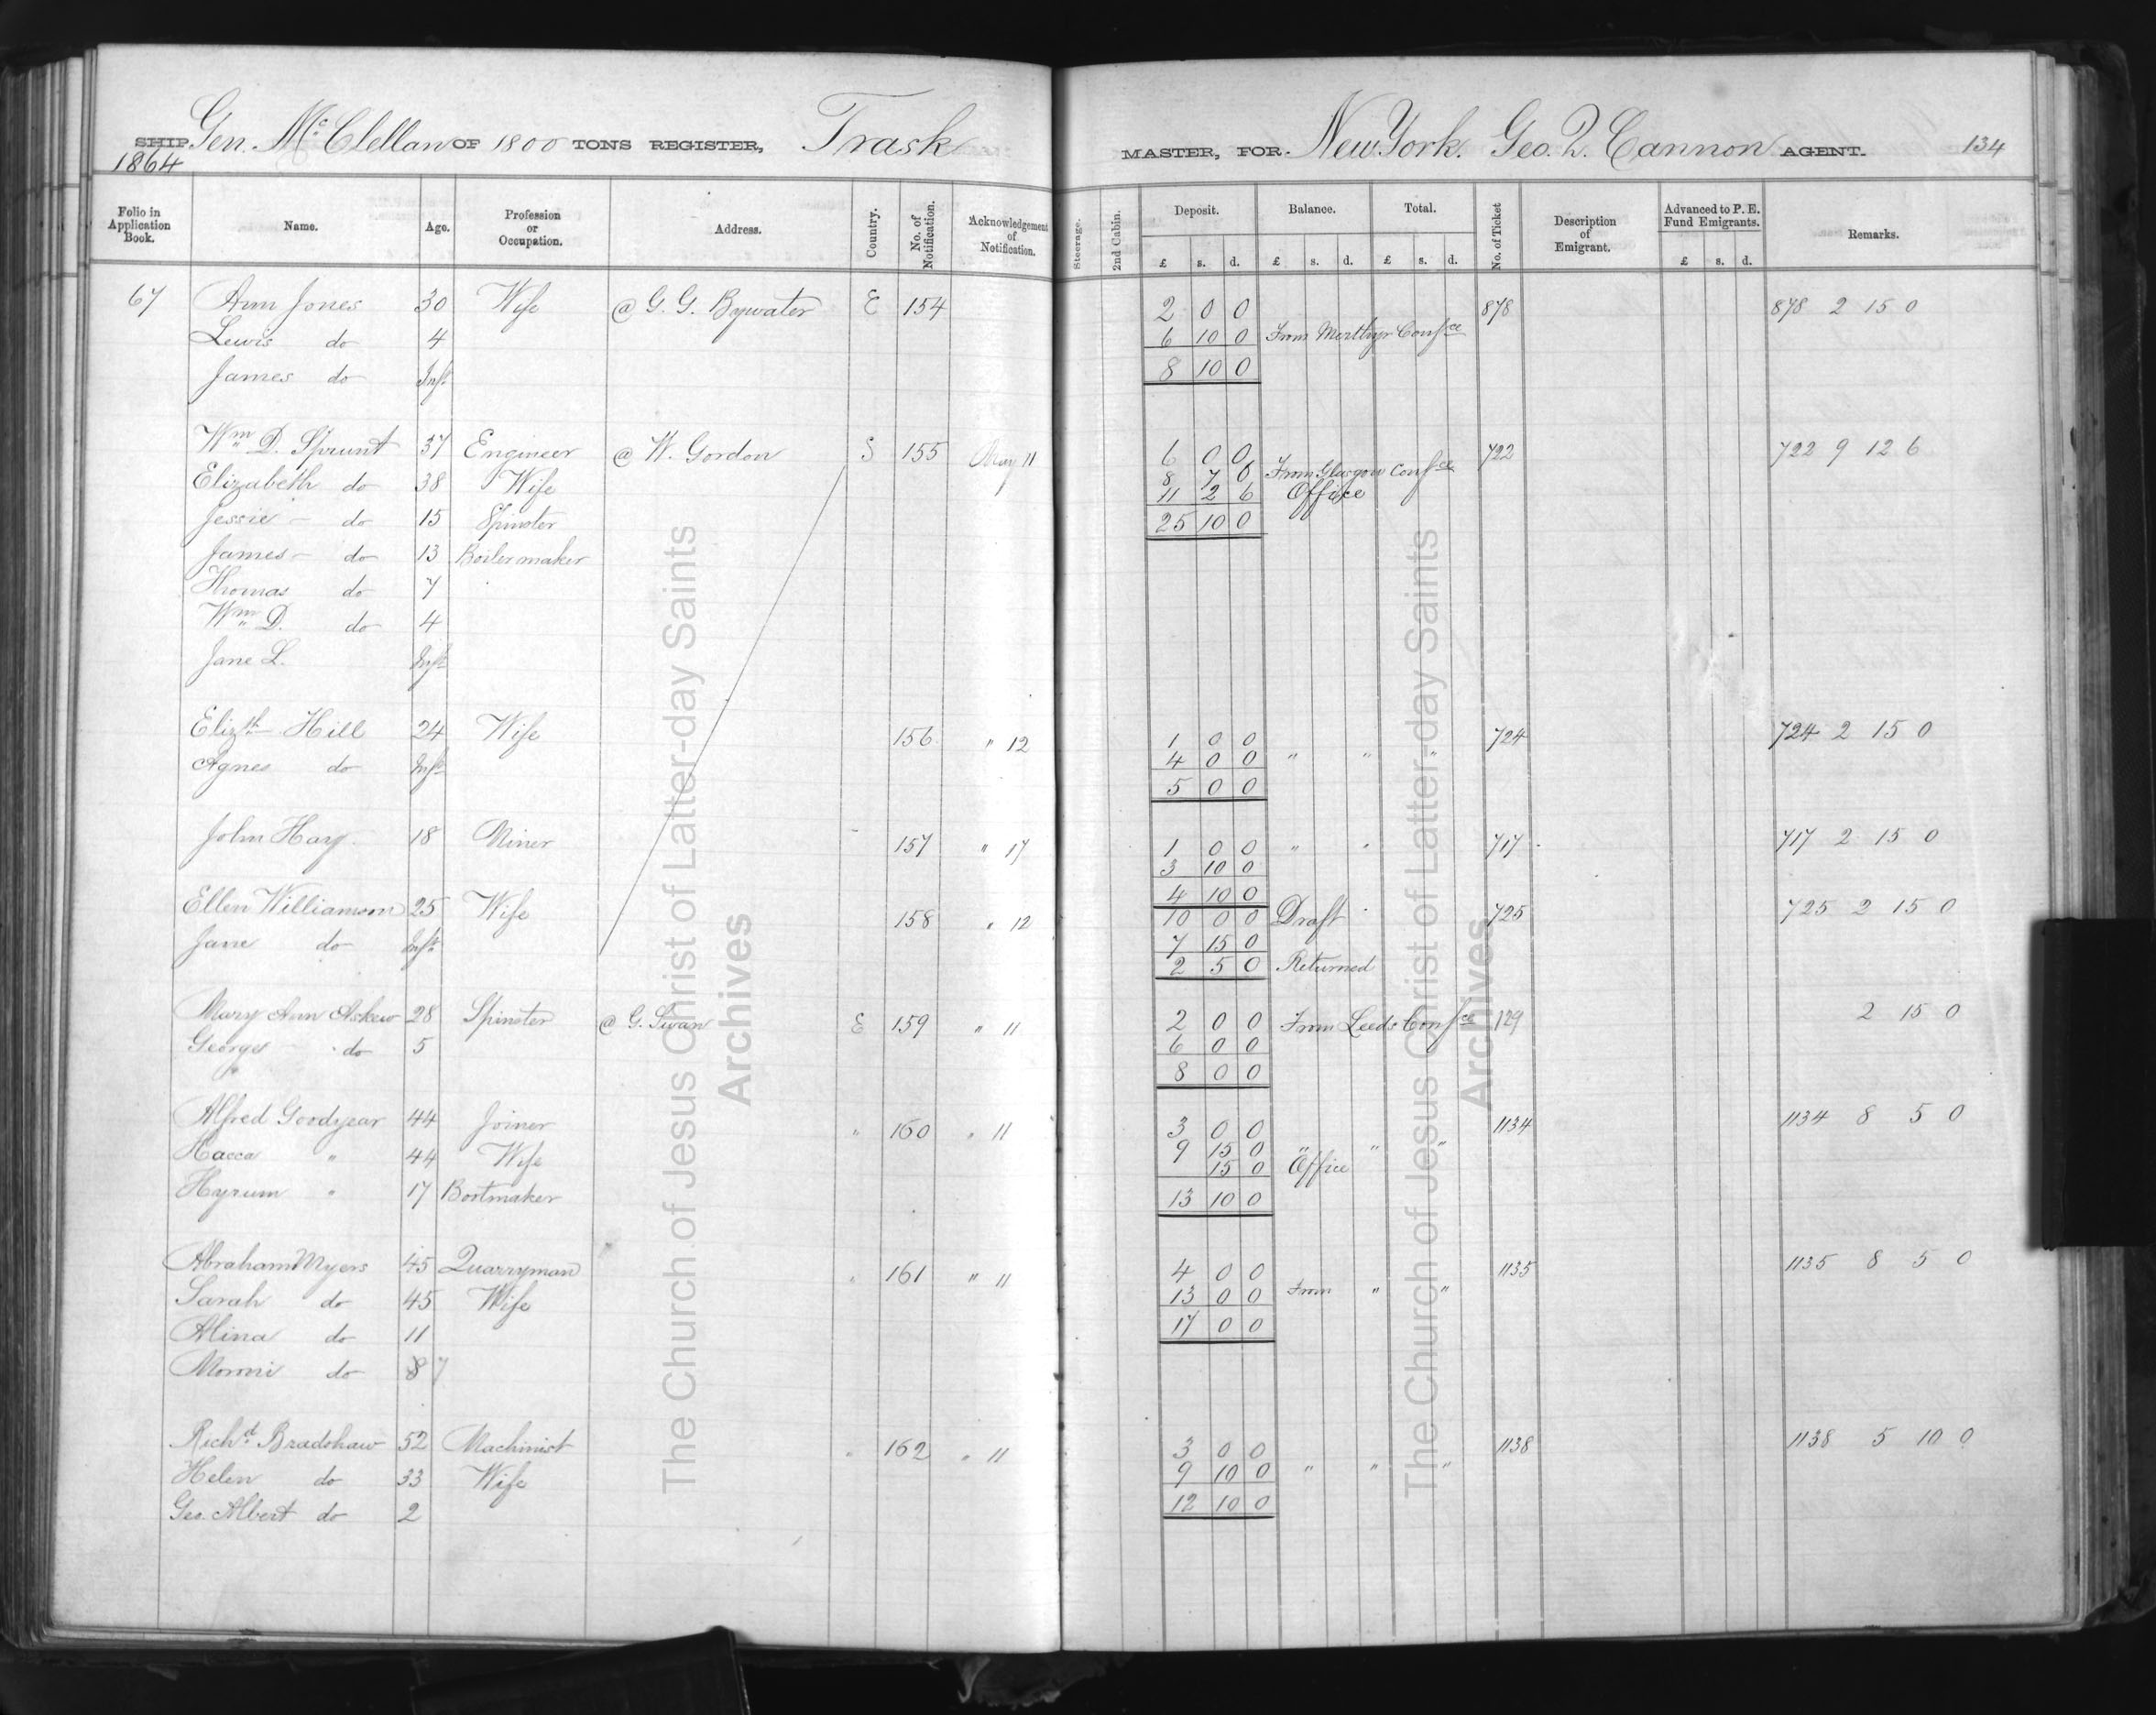 SHIP Gen. McClellan OF 1800 TONS REGISTER, Trask MASTER, FOR New York. Geo. Q. Cannon AGENT. 134
1864
Folio in Application Book. Name. Age. Profession or Occupation. Address. Country. No. of Notification. Acknowledgement of Notification. Steerage. 2nd Cabin. Deposit. Balance. Total. No. of Ticket Description of Emigrant. Advanced to P. E. Fund Emigrants. Remarks.
£ s. d. £ s. d. £ s. d. £ s. d.
67 Ann Jones 30 Wife @ G. G. Bywater E 154 2 0 0 878 878 2 15 0
Lewis do 4 6 10 0 From Merthyr Confce
James do Inft 8 10 0
Wm D. Sprunt 37 Engineer @ W. Gordon S 155 May 11 6 0 0 722 722 9 12 6
8 7 6 From Glasgow Confce
Elizabeth do 38 Wife 11 2 6 Office
Jessie do 15 Spinster 25 10 0
James do 13 Boilermaker
Thomas do 7
Wm D. do 4
Jane L. Inft
Elizth Hill 24 Wife 156 " 12 1 0 0 724 724 2 15 0
Agnes do Inft 4 0 0 " " "
5 0 0
John Hay 18 Miner 157 " 17 1 0 0 " " 717 717 2 15 0
3 10 0
4 10 0
Ellen Williamson 25 Wife 158 " 12 10 0 0 Draft 725 725 2 15 0
Jane do Inft 7 15 0
2 5 0 Returned
Mary Ann Askew 28 Spinster @ G. Swan E 159 " 11 2 0 0 From Leeds Confce 129 2 15 0
George do 5 6 0 0
8 0 0
Alfred Goodyear 44 Joiner " 160 " 11 3 0 0 1134 1134 8 5 0
Hacca " 44 Wife 9 15 0 " " "
15 0 Office
Hyrum " 17 Bootmaker 13 10 0
Abraham Myers 45 Quarryman " 161 " 11 4 0 0 1135 1135 8 5 0
Sarah do 45 Wife 13 0 0 From " "
Alina do 11 17 0 0
Moroni do 8 7
Richd Bradshaw 52 Machinist " 162 " 11 3 0 0 1138 1138 5 10 0
Helen do 33 Wife 9 10 0 " " "
Geo. Albert do 2 12 10 0
The Church of Jesus Christ of Latter-day Saints
Archives
The Church of Jesus Christ of Latter-day Saints
Archives